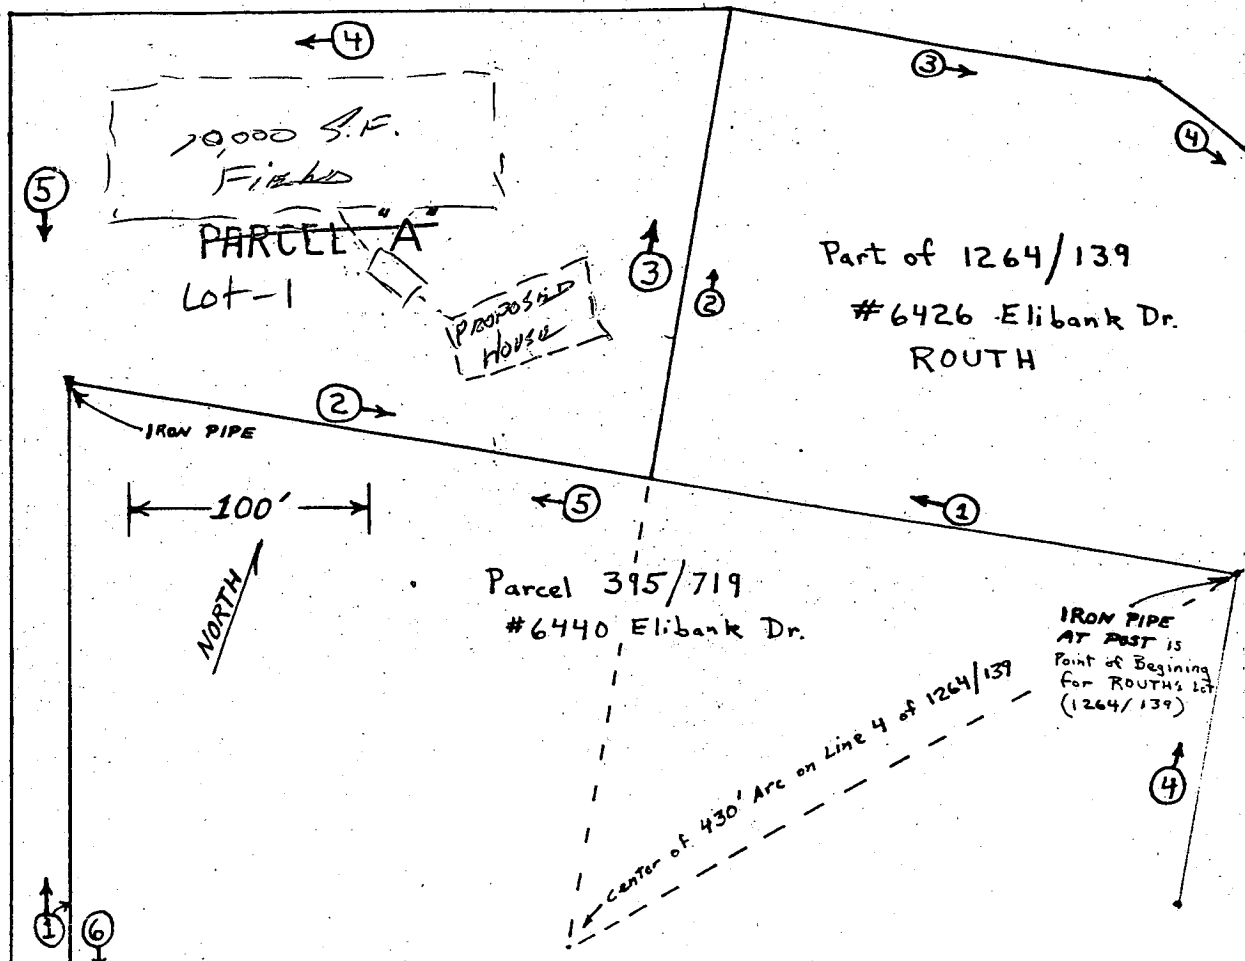 4
3
4
10,000 S.F.
Fields
5
PARCEL "A"
Lot-1
3
2
PROPOSED
HOUSE
Part of 1264/139
#6426 Elibank Dr.
ROUTH
2
IRON PIPE
100'
5
1
NORTH
Parcel 395/719
#6440 Elibank Dr.
IRON PIPE
AT POST is
Point of Begining
for ROUTH's Lot
(1264/139)
Center of 430' Arc on Line 4 of 1264/139
4
1
6